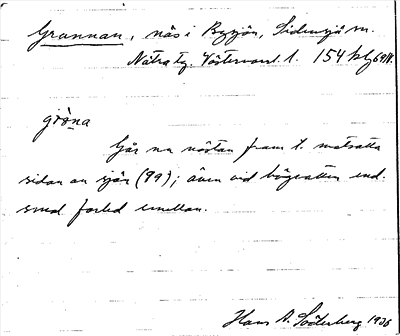 Grannan, näs i Bysjön, Sidensjö sn.
Nätra tg. Västernorrl. l. 154 kbg 69NV.
gròna
Går nu nästan fram t. motsatta
sidan av sjön (99); även vid högvatten end.
smal förbid. emellan.
Hans A. Söderberg 1936